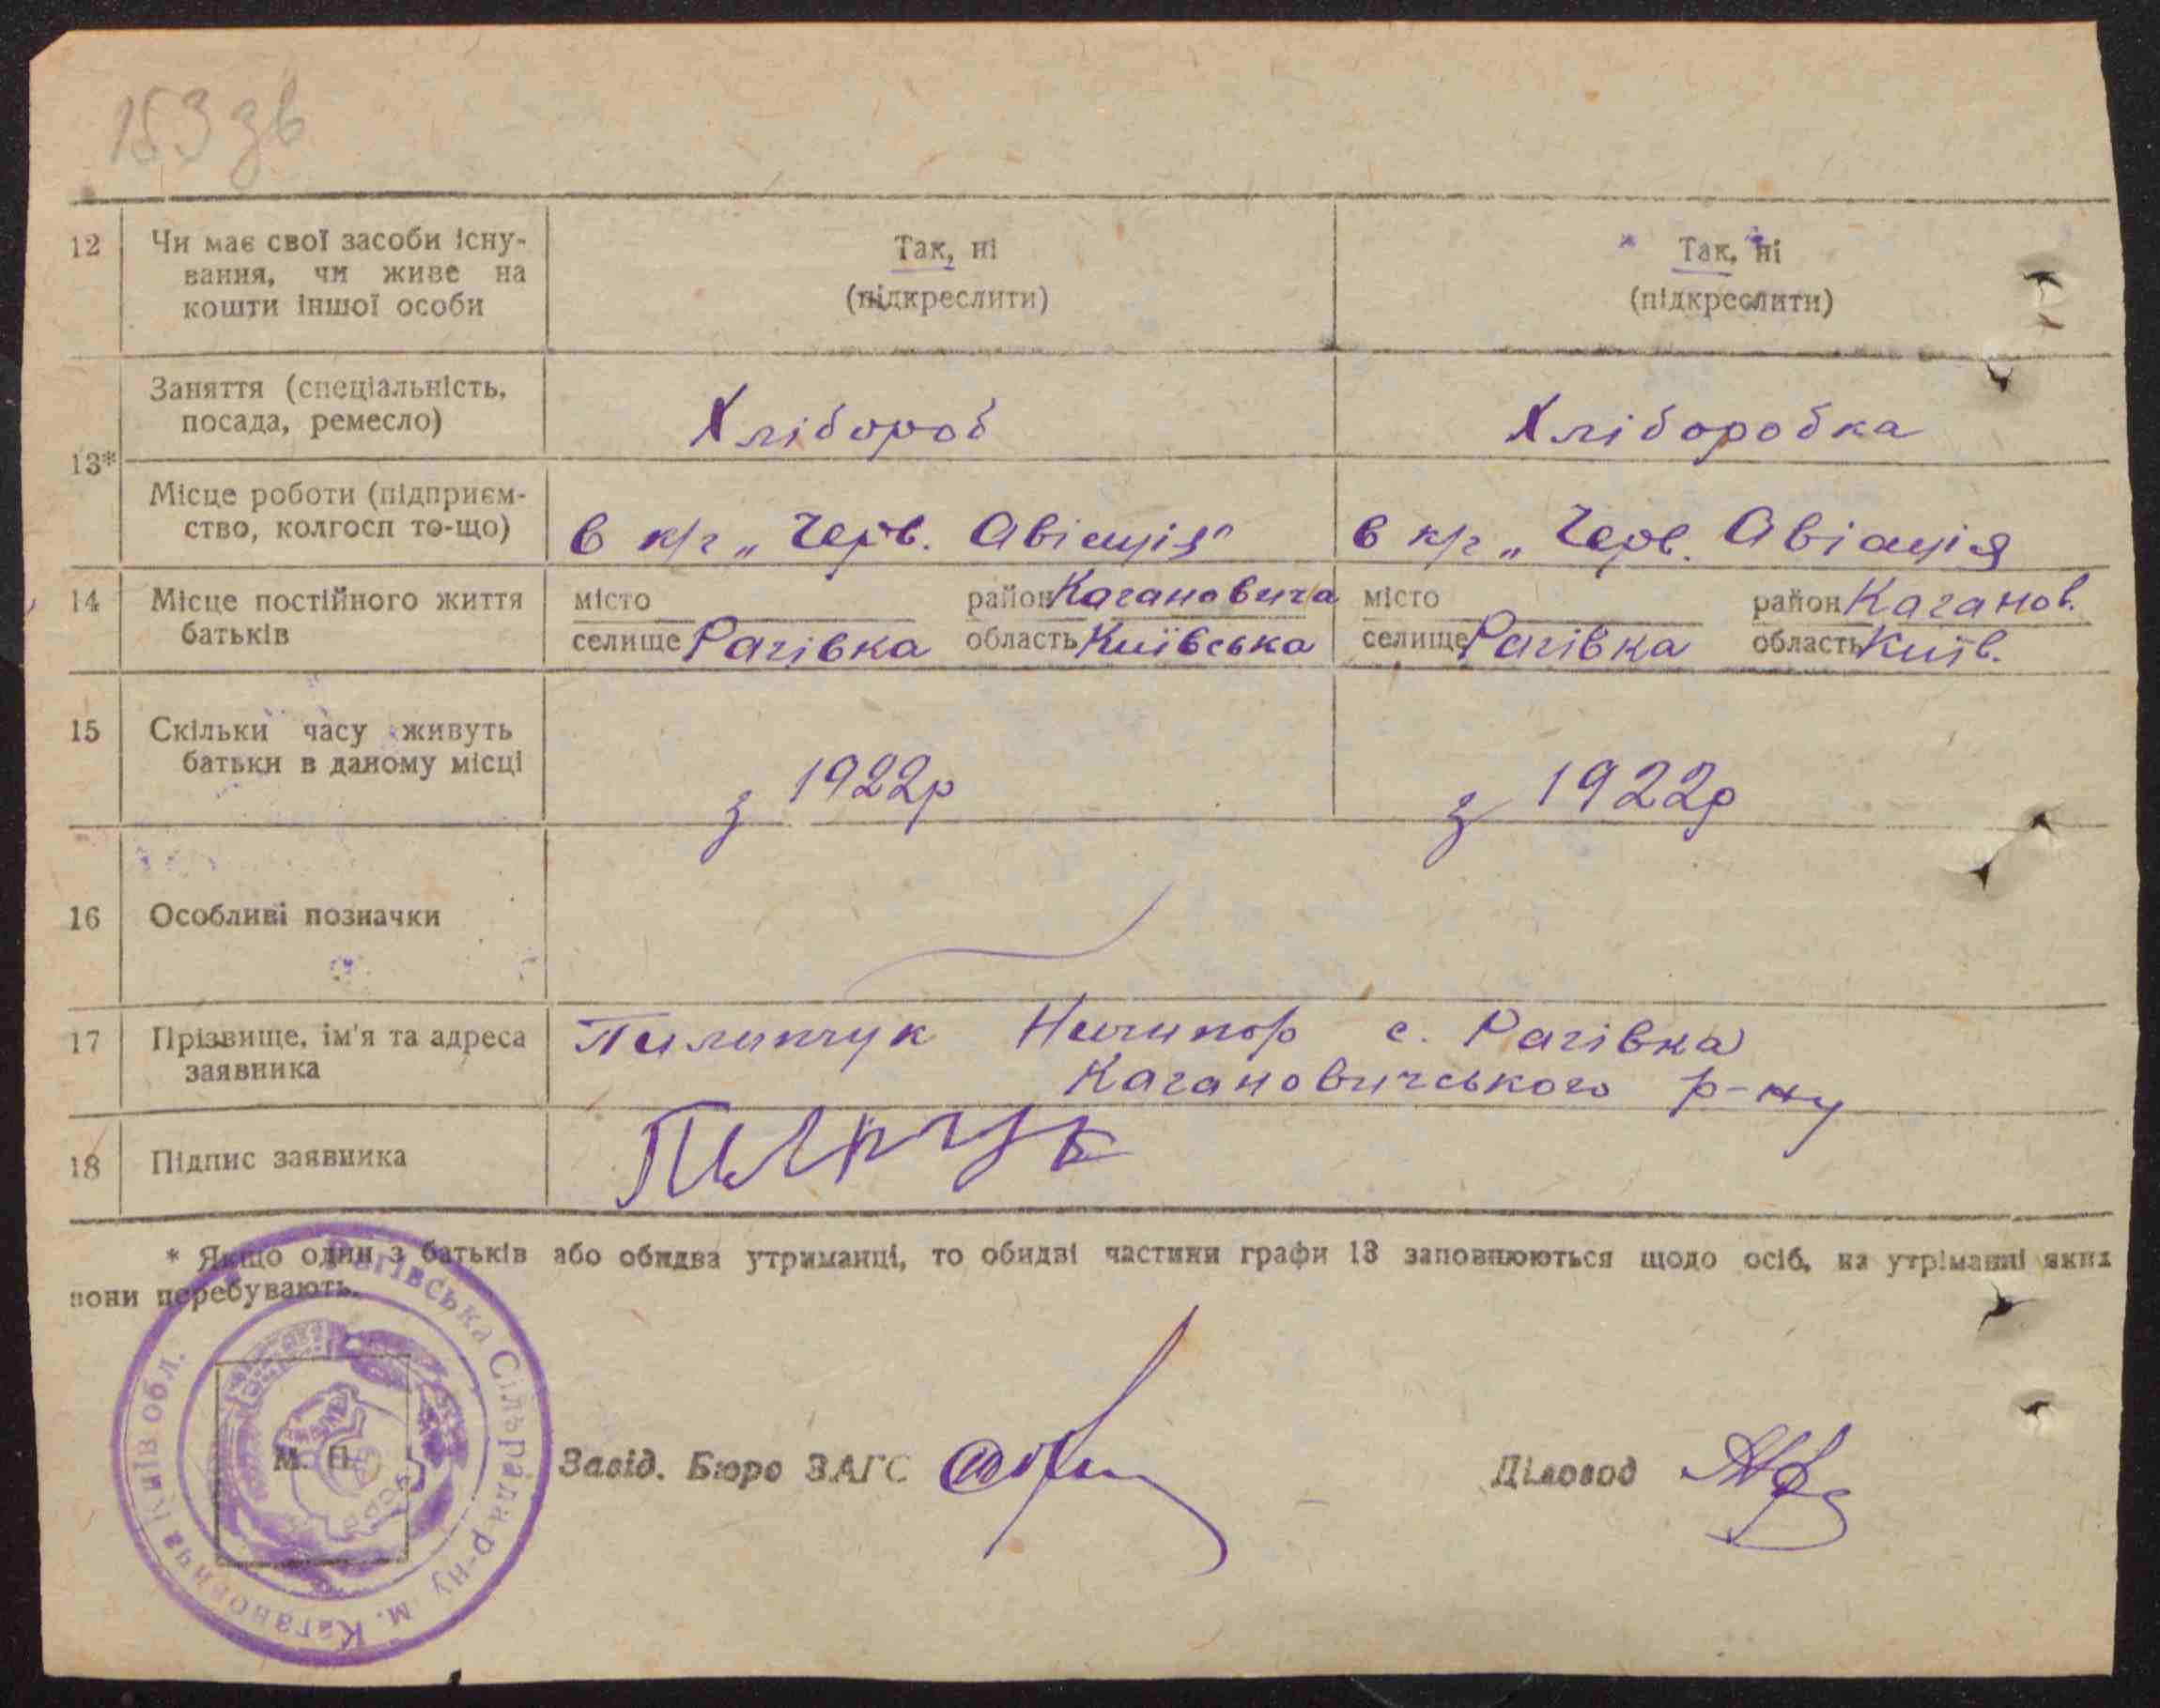 153 зв
12 Чи має свої засоби існу-
вання, чи живе на
кошти іншої особи
Так, ні
(підкреслити)
Так, ні
(підкреслити)
13*
Заняття (спеціальність,
посада, ремесло)
Хлібороб
Хліборобка
Місце роботи (підприєм-
ство, колгосп то-що)
в к/г „Черв. Авіація"
в к/г „Черв. Авіація
14 Місце постійного життя
батьків
місто район Кагановича
селище Рагівка область Київська
місто район Каганов.
селище Рагівка область Київ.
15 Скільки часу живуть
батьки в даному місці
з 1922р
з 1922р
16 Особливі позначки
17 Прізвище, ім'я та адреса
заявника
Пилипчук Ничипор с. Рагівка
Кагановичського р-ну
18 Підпис заявника
Пилпчук
* Якщо один з батьків або обидва утриманці, то обидві частини графи 13 заповнюються щодо осіб, на утріманні яких
вони перебувають.
Рагівська Сільрада р-ну м. Кагановича Київ обл.
М. П.
Завід. Бюро ЗАГС
Діловод